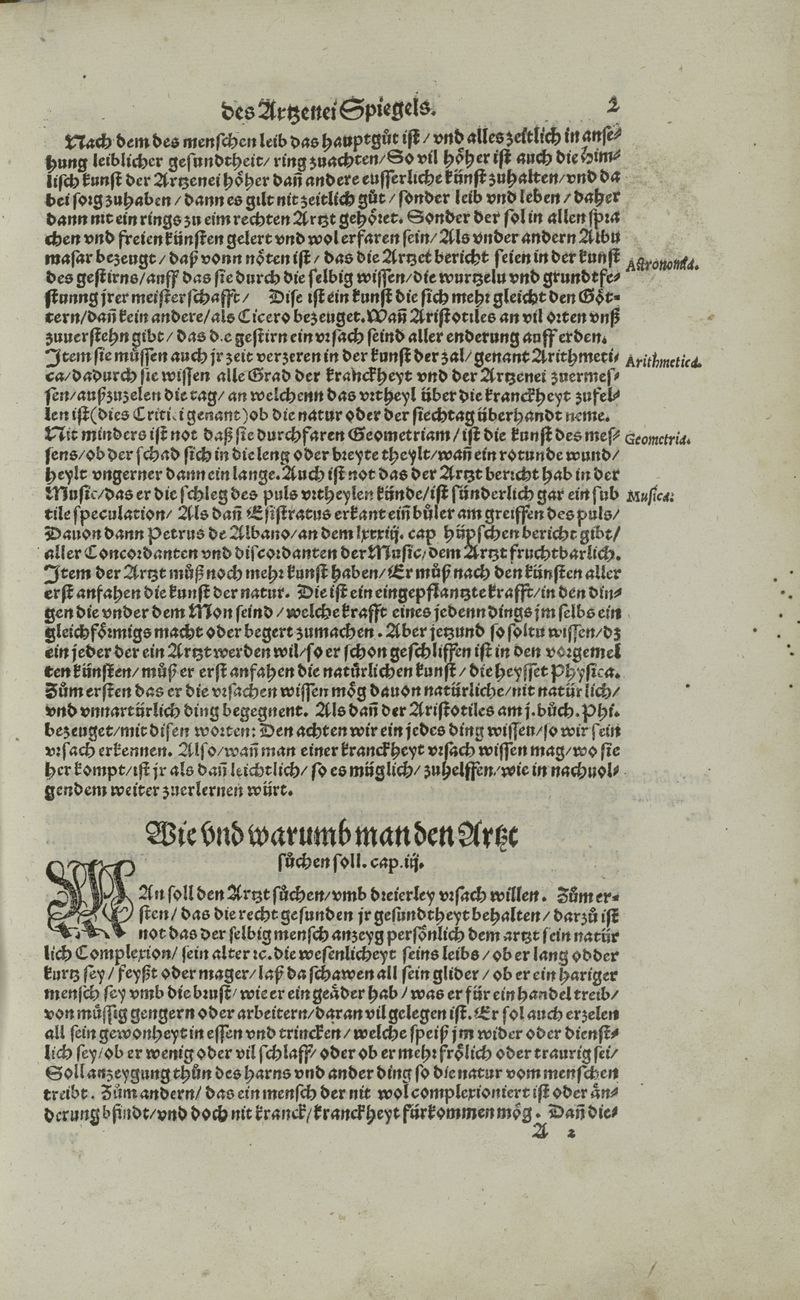 des Artzenei Spiegels. 2
Nach dem des menschen leib das hauptgůt ist / vnd alles zeitlich in anse⸗
hung leiblicher gesundtheit / ring zuachten / So vil höher ist auch die him⸗
lisch kunst der Artzenei höher dañ andere eusserliche künst zuhalten / vnd da
bei sorg zuhaben / dann es gilt nit zeitlich gůt / sonder leib vnd leben / daher
dann nit ein rings zu eim rechten Artzt gehöret. Sonder der sol in allen spra
chen vnd freien künsten gelert vnd wol erfaren sein / Als vnder andern Albu
masar bezeugt / daß vonn nöten ist / das die Artzet bericht seien in der kunst
Astronomia.
des gestirns / auff das sie durch die selbig wissen / die wurtzeln vnd grundtfe⸗
stunng jrer meisterschafft / Dise ist ein kunst die sich mehr gleicht den Göt⸗
tern / dañ kein andere / als Cicero bezeuget. Wañ Aristotiles an vil orten vnß
zuuerstehn gibt / das die gestirn ein vrsach seind aller enderung auff erden.
Item sie müssen auch jr zeit verzeren in der kunst der zal / genant Arithmeti⸗
Arithmetica.
ca / dadurch sie wissen alle Grad der kranckheyt vnd der Artzenei zuermes⸗
sen / außzuzelen die tag / an welchenn das vrtheyl über die kranckheyt zufel⸗
len ist (dies Critici genant) ob die natur oder der siechtag überhandt neme.
Nit minders ist not daß sie durchfaren Geometriam / ist die kunst des mes⸗
Geometria.
sens / ob der schad sich in die leng oder breyte theylt / wañ ein rotunde wund /
heylt vngerner dann ein lange. Auch ist not das der Artzt bericht hab in der
Music / das er die schleg des puls vrtheylen künde / ist sünderlich gar ein sub
Musica.
tile speculation / Als dañ Esistratus erkant eiñ bůler am greiffen des puls /
Dauon dann Petrus de Albano / an dem lxxxiij. cap hüpschen bericht gibt /
aller Concordanten vnd discordanten der Music / dem Artzt fruchtbarlich.
Item der Artzt můß noch mehr kunst haben / Er můß nach den künsten aller
erst anfahen die kunst der natur. Die ist ein eingepflantzte krafft / in den din⸗
gen die vnder dem Mon seind / welche krafft eines jedenn dings jm selbs ein
gleichförmigs macht oder begert zumachen. Aber jetzund so soltu wissen / dz
ein jeder der ein Artzt werden wil / so er schon geschliffen ist in den vorgemel
ten künsten / můß er erst anfahen die natürlichen kunst / die heysset Physica.
Zům ersten das er die vrsachen wissen mög dauon natürliche / nit natürlich /
vnd vnnartürlich ding begegnent. Als dañ der Aristotiles am j. bůch. Phi.
bezeuget / mit disen worten: Den achten wir ein jedes ding wissen / so wir sein
vrsach erkennen. Also / wañ man einer kranckheyt vrsach wissen mag / wo sie
her kompt / ist jr als dañ leichtlich / so es müglich / zuhelffen / wie in nachuol⸗
gendem weiter zuerlernen würt.
Wie vnd warumb man den Artzt
sůchen soll. cap. iij.
MAn soll den Artzt sůchen / vmb dreierley vrsach willen. Zům er⸗
sten / das die recht gesunden jr gesundtheyt behalten / darzů ist
not das der selbig mensch anzeyg persönlich dem artzt sein natür
lich Complexion / sein alter ꝛc. die wesenlicheyt seins leibs / ob er lang odder
kurtz sey / feyßt oder mager / laß da schawen all sein glider / ob er ein hariger
mensch sey vmb die brust / wie er ein geäder hab / was er für ein handel treib /
von müssig gengern oder arbeitern / daran vil gelegen ist. Er sol auch erzelen
all sein gewonheyt in essen vnd trincken / welche speiß jm wider oder dienst⸗
lich sey / ob er wenig oder vil schlaff / oder ob er mehr frölich oder traurig sei /
Soll anzeygung thůn des harns vnd ander ding so die natur vom menschen
treibt. Zům andern / das ein mensch der nit wol complexioniert ist oder än⸗
derung bfindt / vnd doch nit kranck / kranckheyt fürkommen mög. Dañ die⸗
A 2